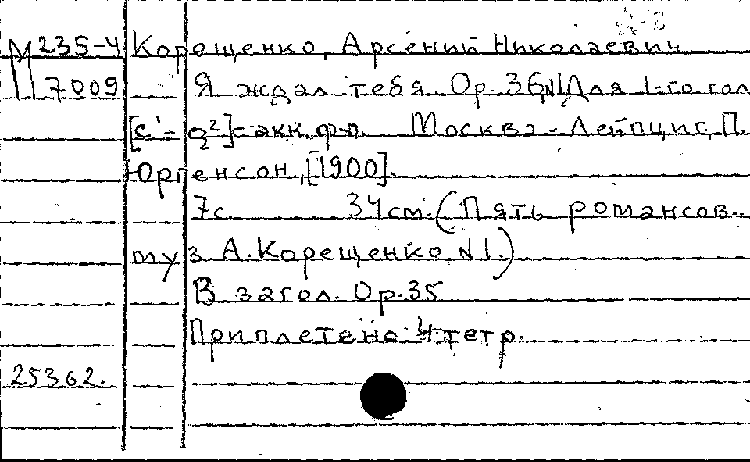 М 235-4 Корещенко, Арсений Николаевич
7009 Я ждал тебя. Ор. 36, №1 Для 1-го гол
[c'-g²] с акк. ф-п. Москва - Лейпциг, П.
Юргенсон, [1900].
7с. 34см. (Пять романсов.
муз А. Корещенко, №1.)
В загол. Ор. 35
Приплетено 4 тетр.
25362.